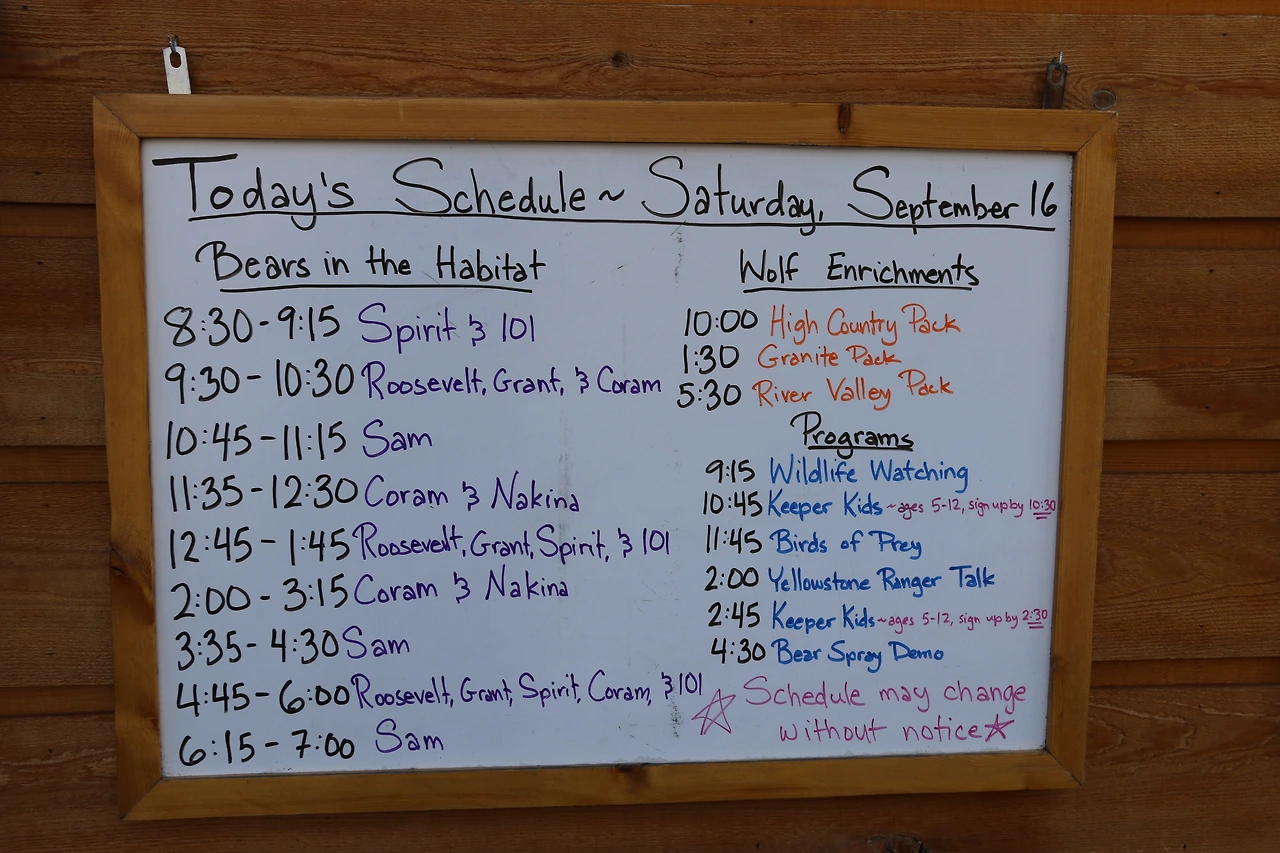 Today's Schedule ~ Saturday, September 16
Bears in the Habitat
8:30 - 9:15 Spirit & 101
9:30 - 10:30 Roosevelt, Grant, & Coram
10:45 - 11:15 Sam
11:35 - 12:30 Coram & Nakina
12:45 - 1:45 Roosevelt, Grant, Spirit, & 101
2:00 - 3:15 Coram & Nakina
3:35 - 4:30 Sam
4:45 - 6:00 Roosevelt, Grant, Spirit, Coram, & 101
6:15 - 7:00 Sam
Wolf Enrichments
10:00 High Country Pack
1:30 Granite Pack
5:30 River Valley Pack
Programs
9:15 Wildlife Watching
10:45 Keeper Kids ~ages 5-12, sign up by 10:30
11:45 Birds of Prey
2:00 Yellowstone Ranger Talk
2:45 Keeper Kids ~ages 5-12, sign up by 2:30
4:30 Bear Spray Demo
☆ Schedule may change
without notice ☆